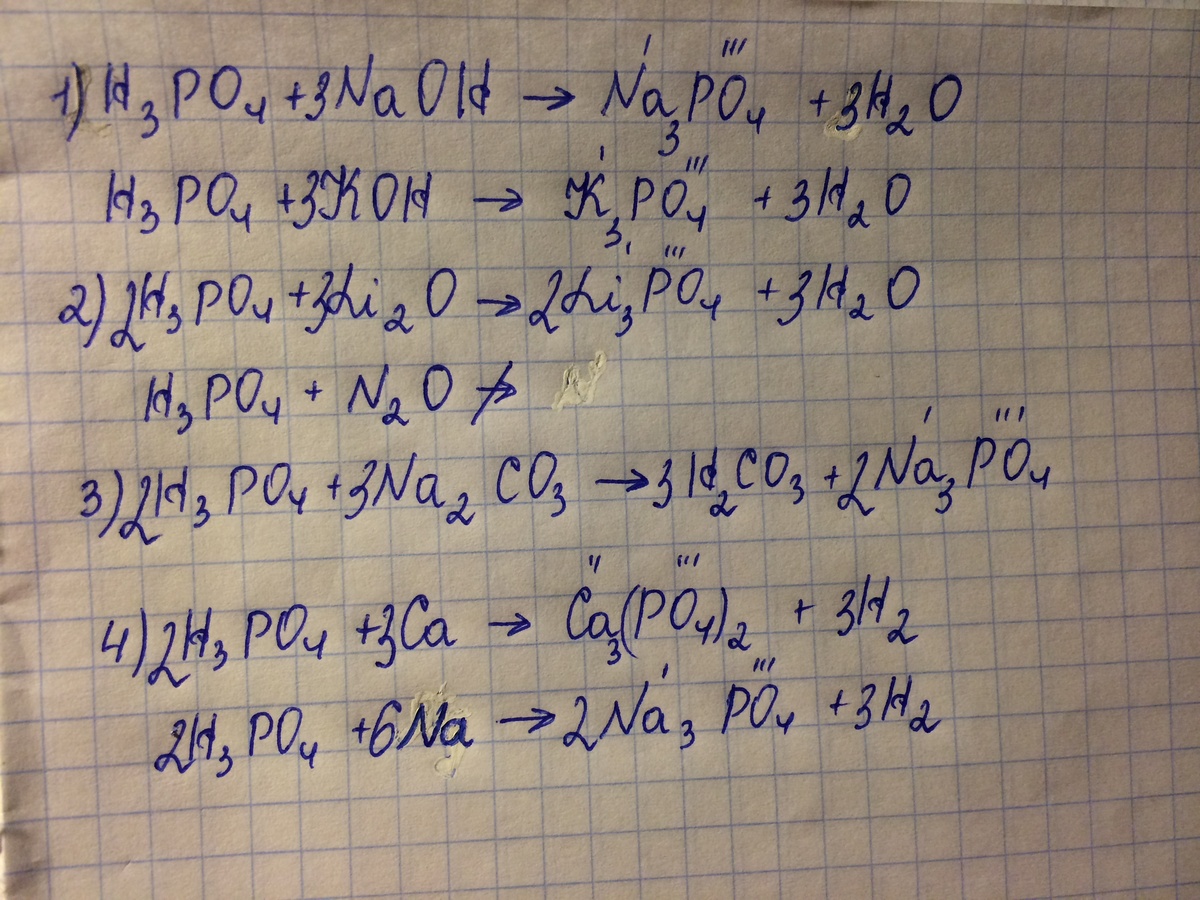 1) H₃PO₄ +3NaOH → Na₃PO₄ +3H₂O
H₃PO₄ +3KOH → K₃PO₄ +3H₂O
2) 2H₃PO₄ +3Li₂O → 2Li₃PO₄ +3H₂O
H₃PO₄ + N₂O ↛
3) 2H₃PO₄ +3Na₂CO₃ → 3H₂CO₃ +2Na₃PO₄
4) 2H₃PO₄ +3Ca → Ca₃(PO₄)₂ + 3H₂
2H₃PO₄ +6Na → 2Na₃PO₄ +3H₂